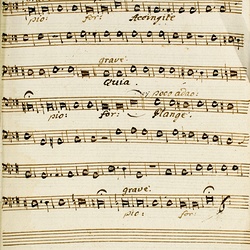 pio: for: Accingite
grave.
Quia
poco adao:
pio: for: Plange.
grave.
pio: for: